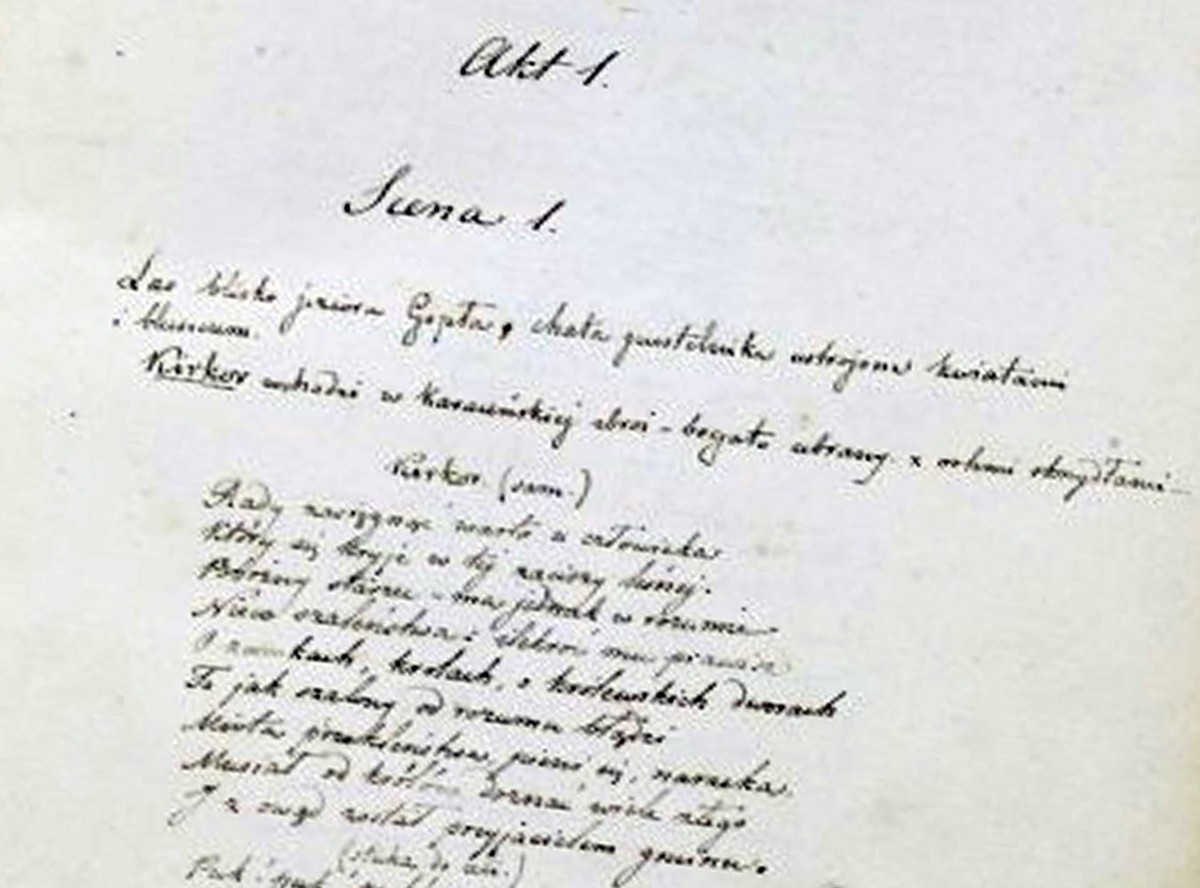 Akt 1.
Scena 1.
Las blisko jeziora Gopła, chata pustelnika ustrojona kwiatami
i bluszczem.
Kirkor wchodzi w karaceńskiej zbroi - bogato ubrany z orlemi skrzydłami -
Kirkor (sam.)
Rady zasięgnąć warto u człowieka
Który się kryje w tej zaciszy leśnej.
Pobożny starzec - ma jednak w rozumie
Nieco szaleństwa: ilekroć mu prawię
O zamkach, królach, o królewskich dworach
To jak szalony od rozumu błądzi
Miota przekleństwa, pieni się, narzeka.
Musiał od królów doznać wiele złego
I z owąd został przyjacielem gminu.
(stuka do celi.)
Puk! puk!